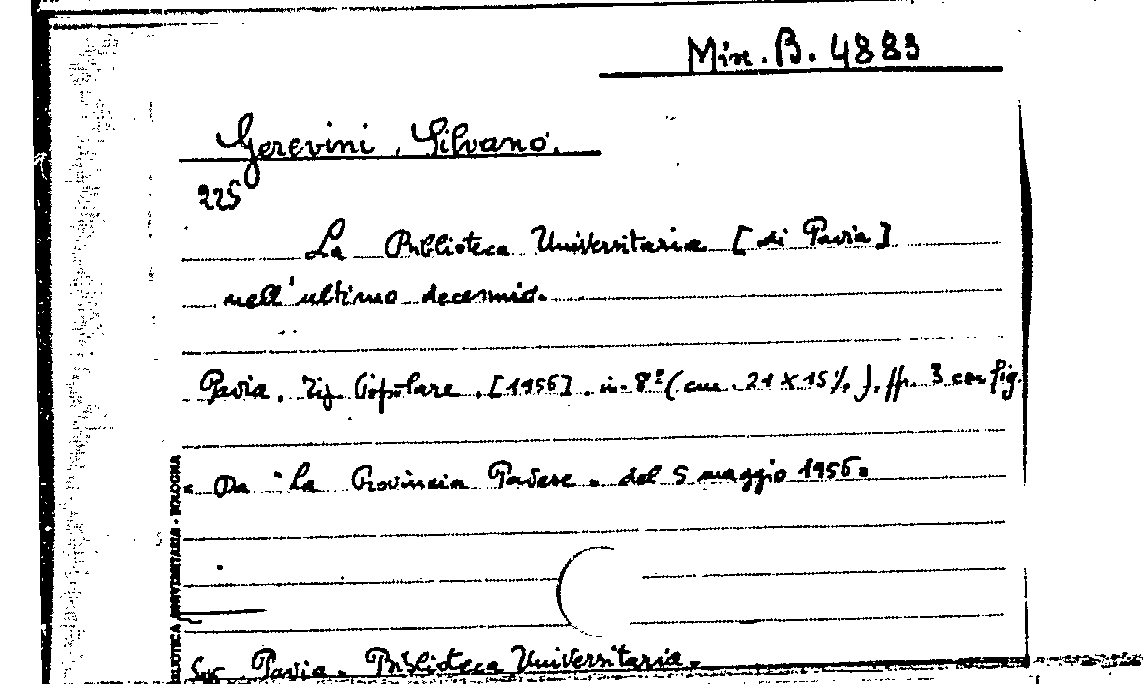 Misc. B. 4883
Gerevini, Silvano.
225
La Biblioteca Universitaria [di Pavia]
nell'ultimo decennio.
Pavia, Tip. Popolare, [1956]. in-8º (cm. 21 X 15½), ff. 3 con fig.
Da "La Provincia Pavese" del 5 maggio 1956.
BIBLIOTECA UNIVERSITARIA - BOLOGNA
Pavia. Biblioteca Universitaria.